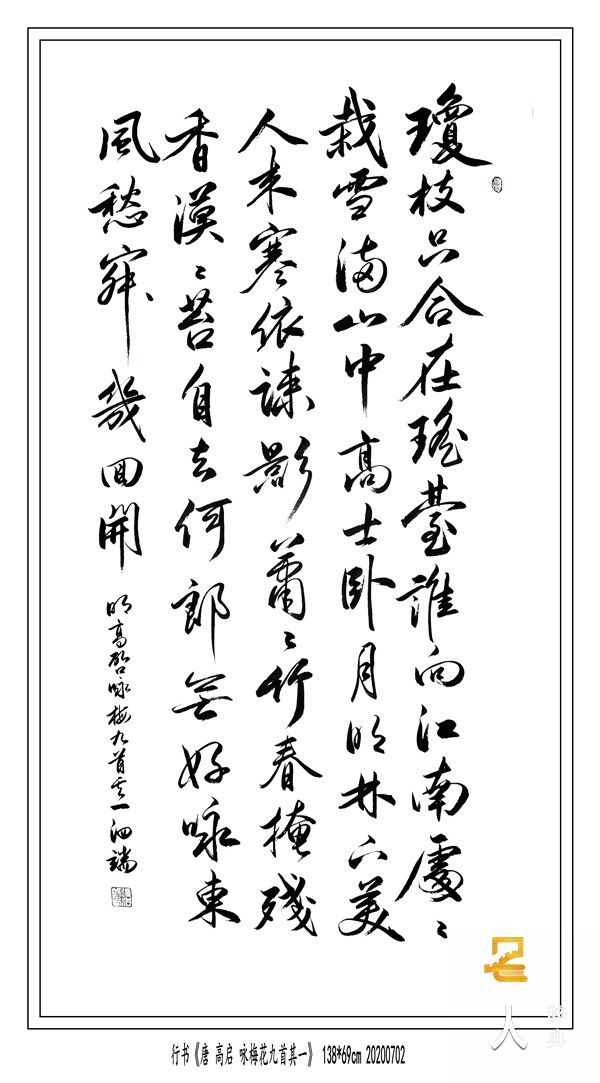 瓊枝只合在瑤臺誰向江南處〻
栽雪滿山中高士卧月明林下美
人来寒依疎影蕭〻竹春掩殘
香漠〻苔自去何郎無好咏東
風愁寂幾囬開
明高啓咏梅九首其一泗端
人
行书《唐 高启 咏梅花九首其一》 138*69cm 20200702